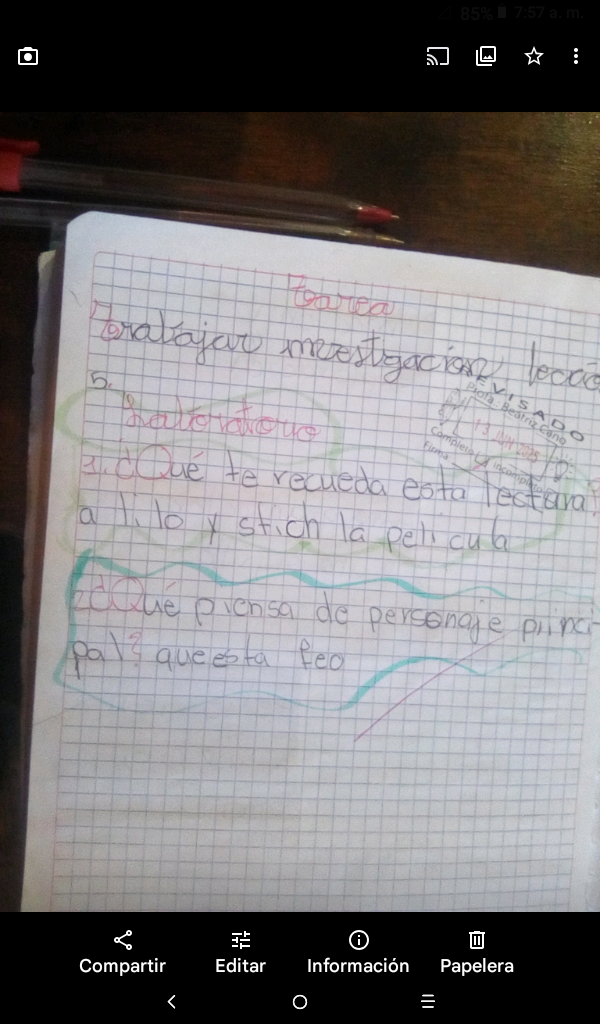 85% 7:57 a. m.
Tarea
Trabajar investigación lección
5.
Laboratorio
REVISADO
Profa. Beatriz Cano
13
Completa
Incompleta
Firma
1. ¿Qué te recueda esta lectura?
a lilo y stich la pelicula
2. ¿Qué piensa de personaje princi-
pal? que esta feo
Compartir Editar Información Papelera